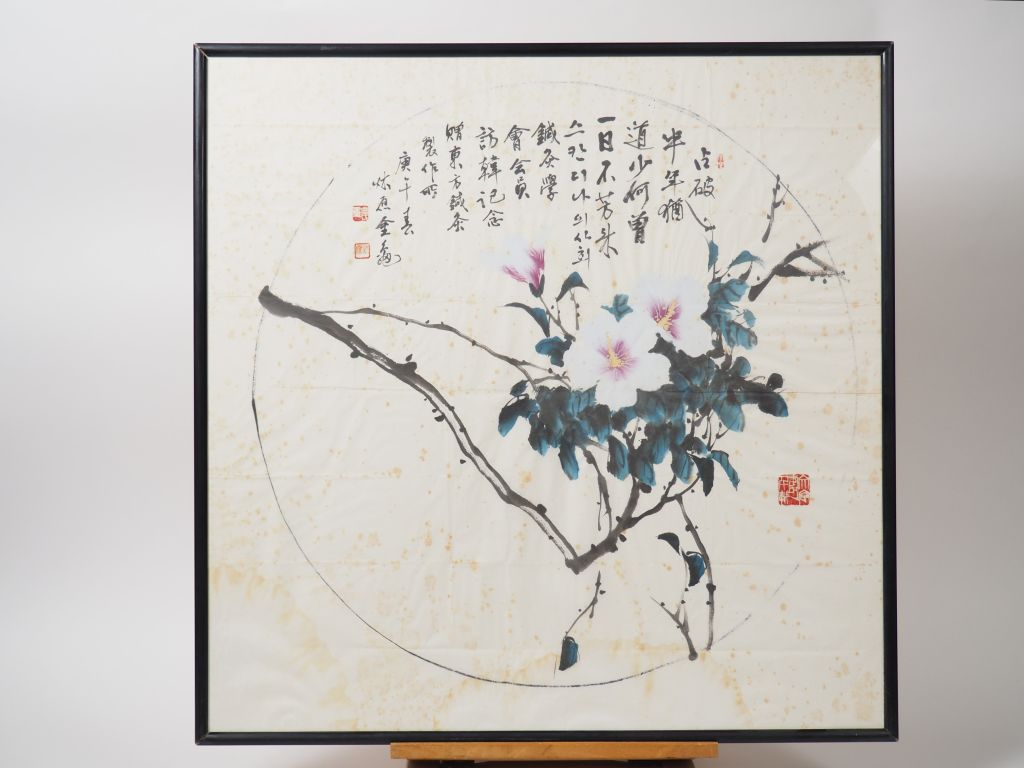 占破
半年猶
道少何曾
一日不芳来
스칸디나의산회
鍼灸學
會会員
訪韓記念
贈東方鍼灸
製作所
庚午春
金